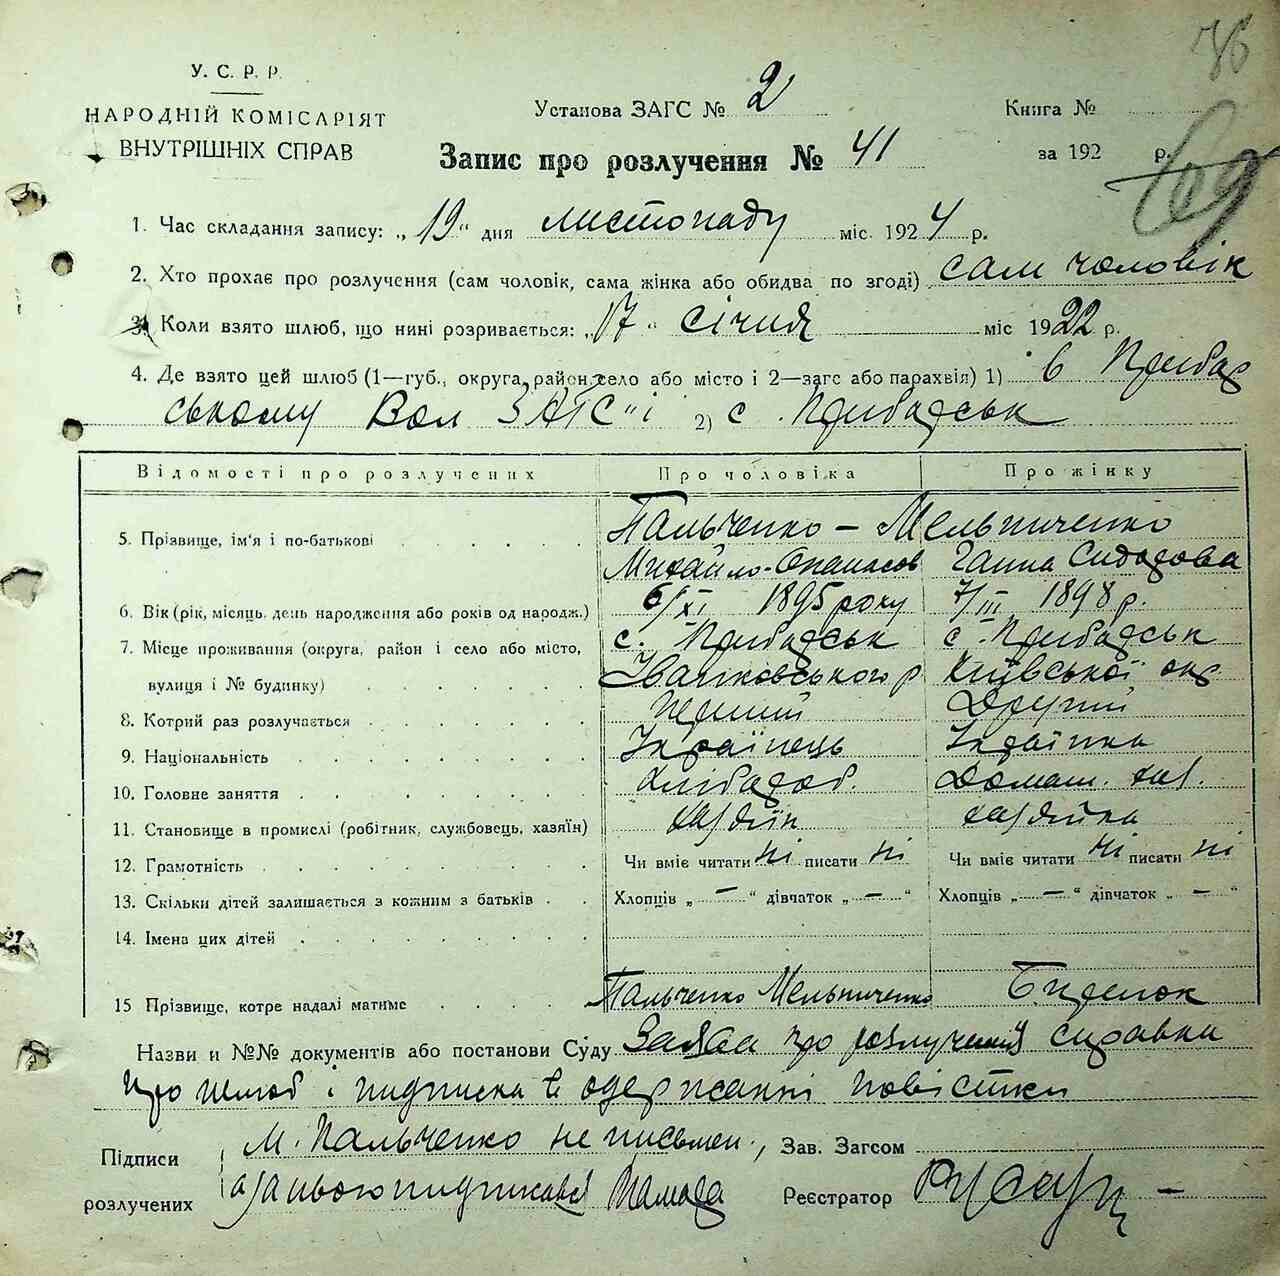 76
У. С. Р. Р.
НАРОДНІЙ КОМІСАРІЯТ
ВНУТРІШНІХ СПРАВ
Установа ЗАГС № 2
Книга №
Запис про розлучення № 41
за 192 р.
69
1. Час складання запису: „19" дня листопаду міс. 1924 р.
2. Хто прохає про розлучення (сам чоловік, сама жінка або обидва по згоді) сам чоловік
3. Коли взято шлюб, що нині розривається: „17" січня міс 1922 р.
4. Де взято цей шлюб (1—губ., округа, район, село або місто і 2—загс або парахвія) 1) в Прибор
ському Вол ЗАГС'і 2) с. Приборськ
Відомості про розлучених Про чоловіка Про жінку
5. Прізвище, ім'я і по-батькові Пальченко – Мельниченко
Михайло Опанасов Ганна Сидорова
6. Вік (рік, місяць, день народження або років од народж.) 6/XI 1895 року 7/III 1898 р.
7. Місце проживання (округа, район і село або місто, с. Приборськ с. Приборськ
вулиця і № будинку) Іванковського р Київської окр.
8. Котрий раз розлучається Перший Другий
9. Національність Українець Українка
10. Головне заняття Хлібороб. Домаш. хаз.
11. Становище в промислі (робітник, службовець, хазяїн) хазяїн хазяйка
12. Грамотність Чи вміє читати ні писати ні Чи вміє читати ні писати ні
13. Скільки дітей залишається з кожним з батьків Хлопців „ — " дівчаток „ — " Хлопців „ — " дівчаток „ — "
14. Імена цих дітей
15 Прізвище, котре надалі матиме Пальченко Мельниченко
Назви и №№ документів або постанови Суду Заява про розлучення справка
про шлюб і підписка в одержанні повістки
Підписи М. Пальченко не письмен., Зав. Загсом
розлучених а за нього підписався
Реєстратор